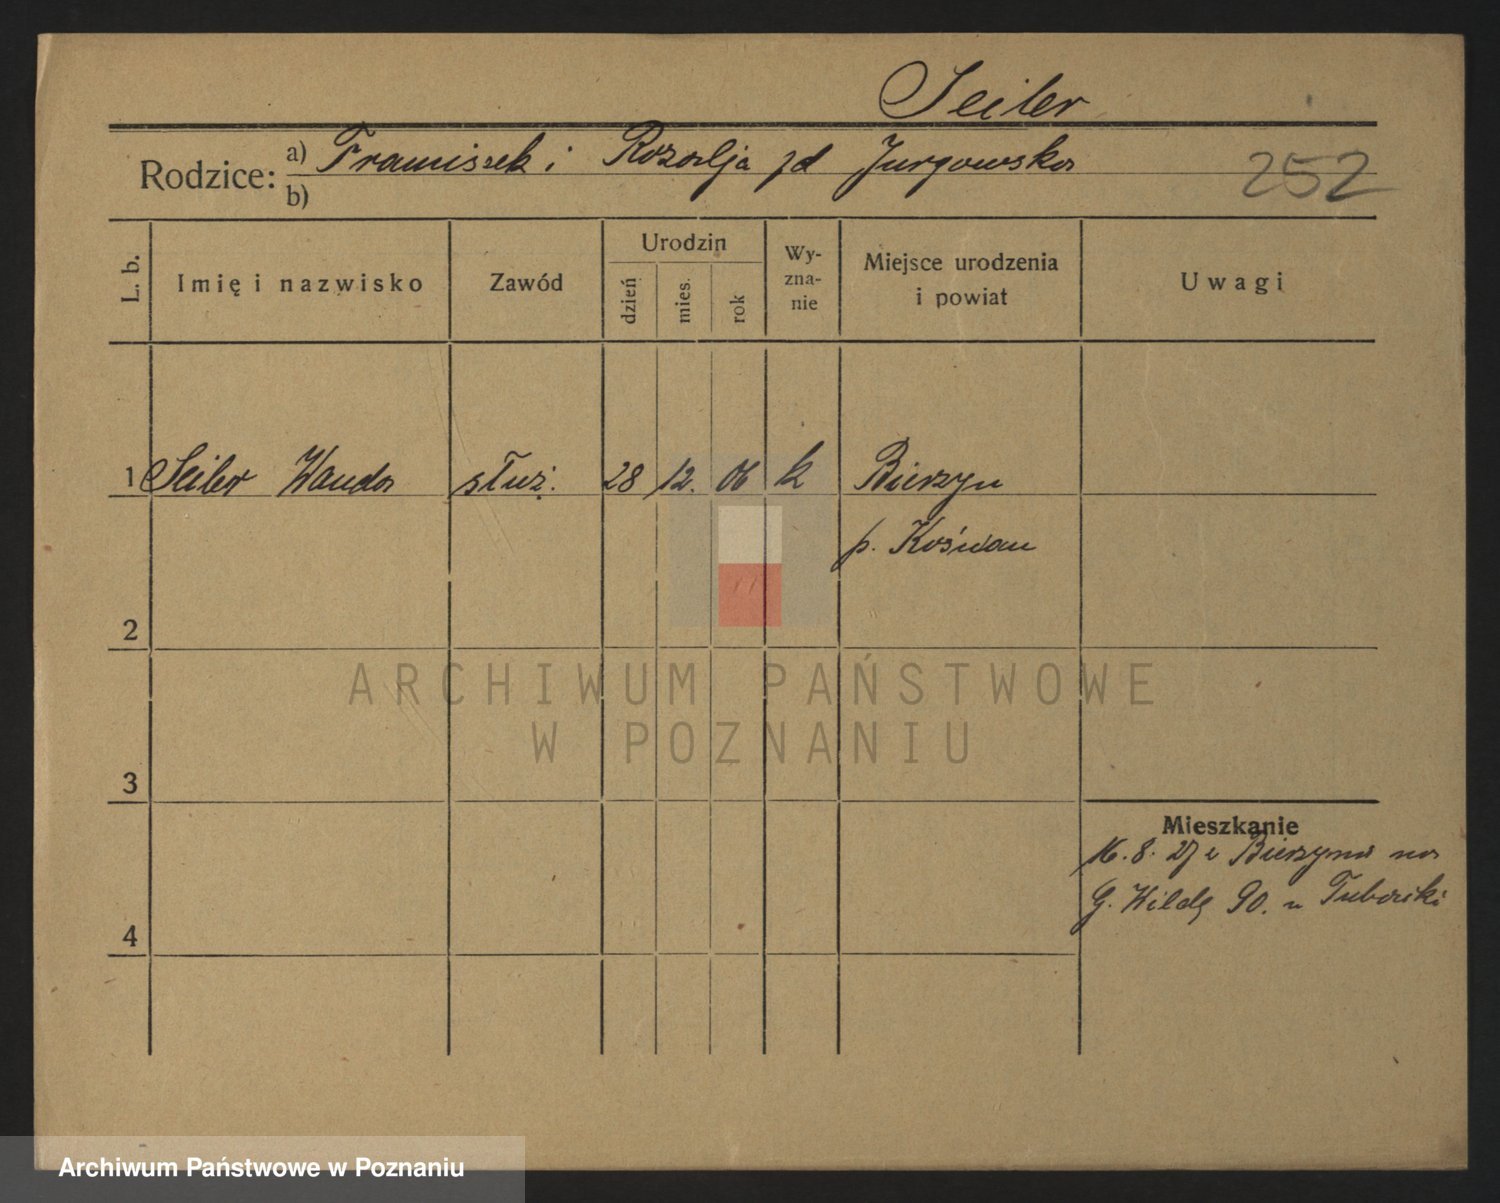 Seiler
Rodzice: a) Franciszek i Rozalja zd Jurgowska
b)
252
L. b.
Imię i nazwisko
Zawód
Urodzin
dzień
mies.
rok
Wy-
zna-
nie
Miejsce urodzenia
i powiat
Uwagi
1 Seiler Wanda służ. 28 12. 06 k Bierzyn
p. Kościan
2
3
4
Mieszkanie
16. 8. 27 z Bierzyna na
G. Wildę 90. u
ARCHIWUM PAŃSTWOWE
W POZNANIU
Archiwum Państwowe w Poznaniu